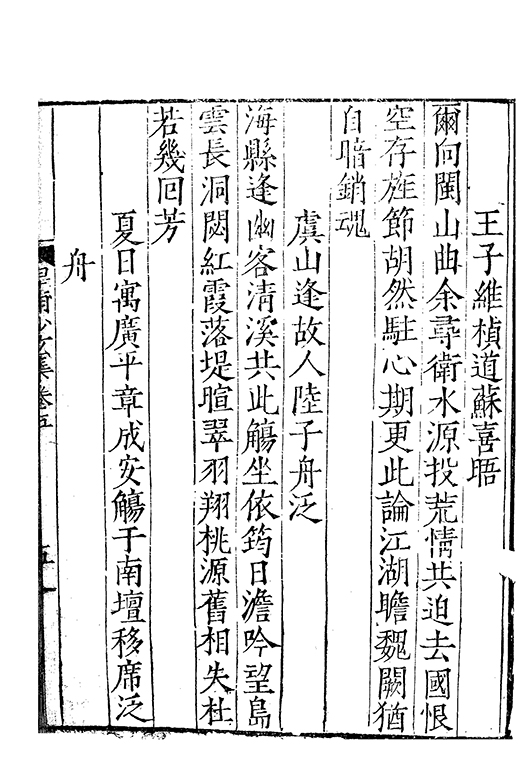 王子維楨道蘇喜晤
爾向閩山曲余尋衛水源投荒情共迫去國恨
空存旌節胡然駐心期更此論江湖瞻魏闕猶
自暗銷魂
虞山逢故人陸子舟泛
海縣逢幽客清溪共此觴坐依筠日澹吟望島
雲長洞閟紅霞落堤暄翠羽翔桃源舊相失杜
若幾囘芳
夏日寓廣平章成安觴于南壇移席泛
舟
皇甫少玄集卷五
五